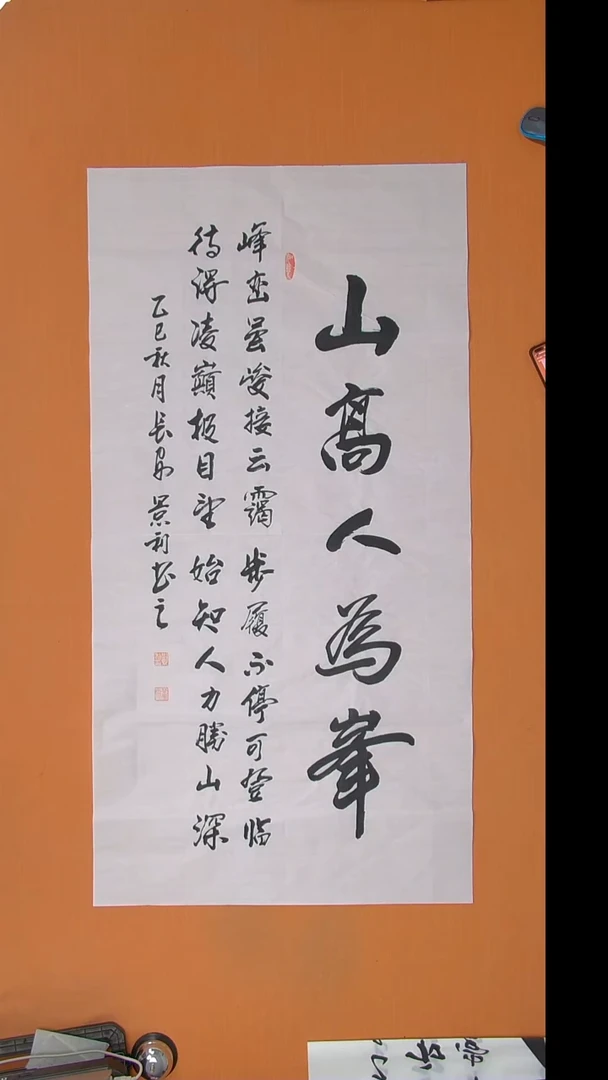 山高人為峯
峰峦叠嶂接云霭步履不停可登临
待得凌巔极目望始知人力勝山深
乙巳秋月长安景利书之